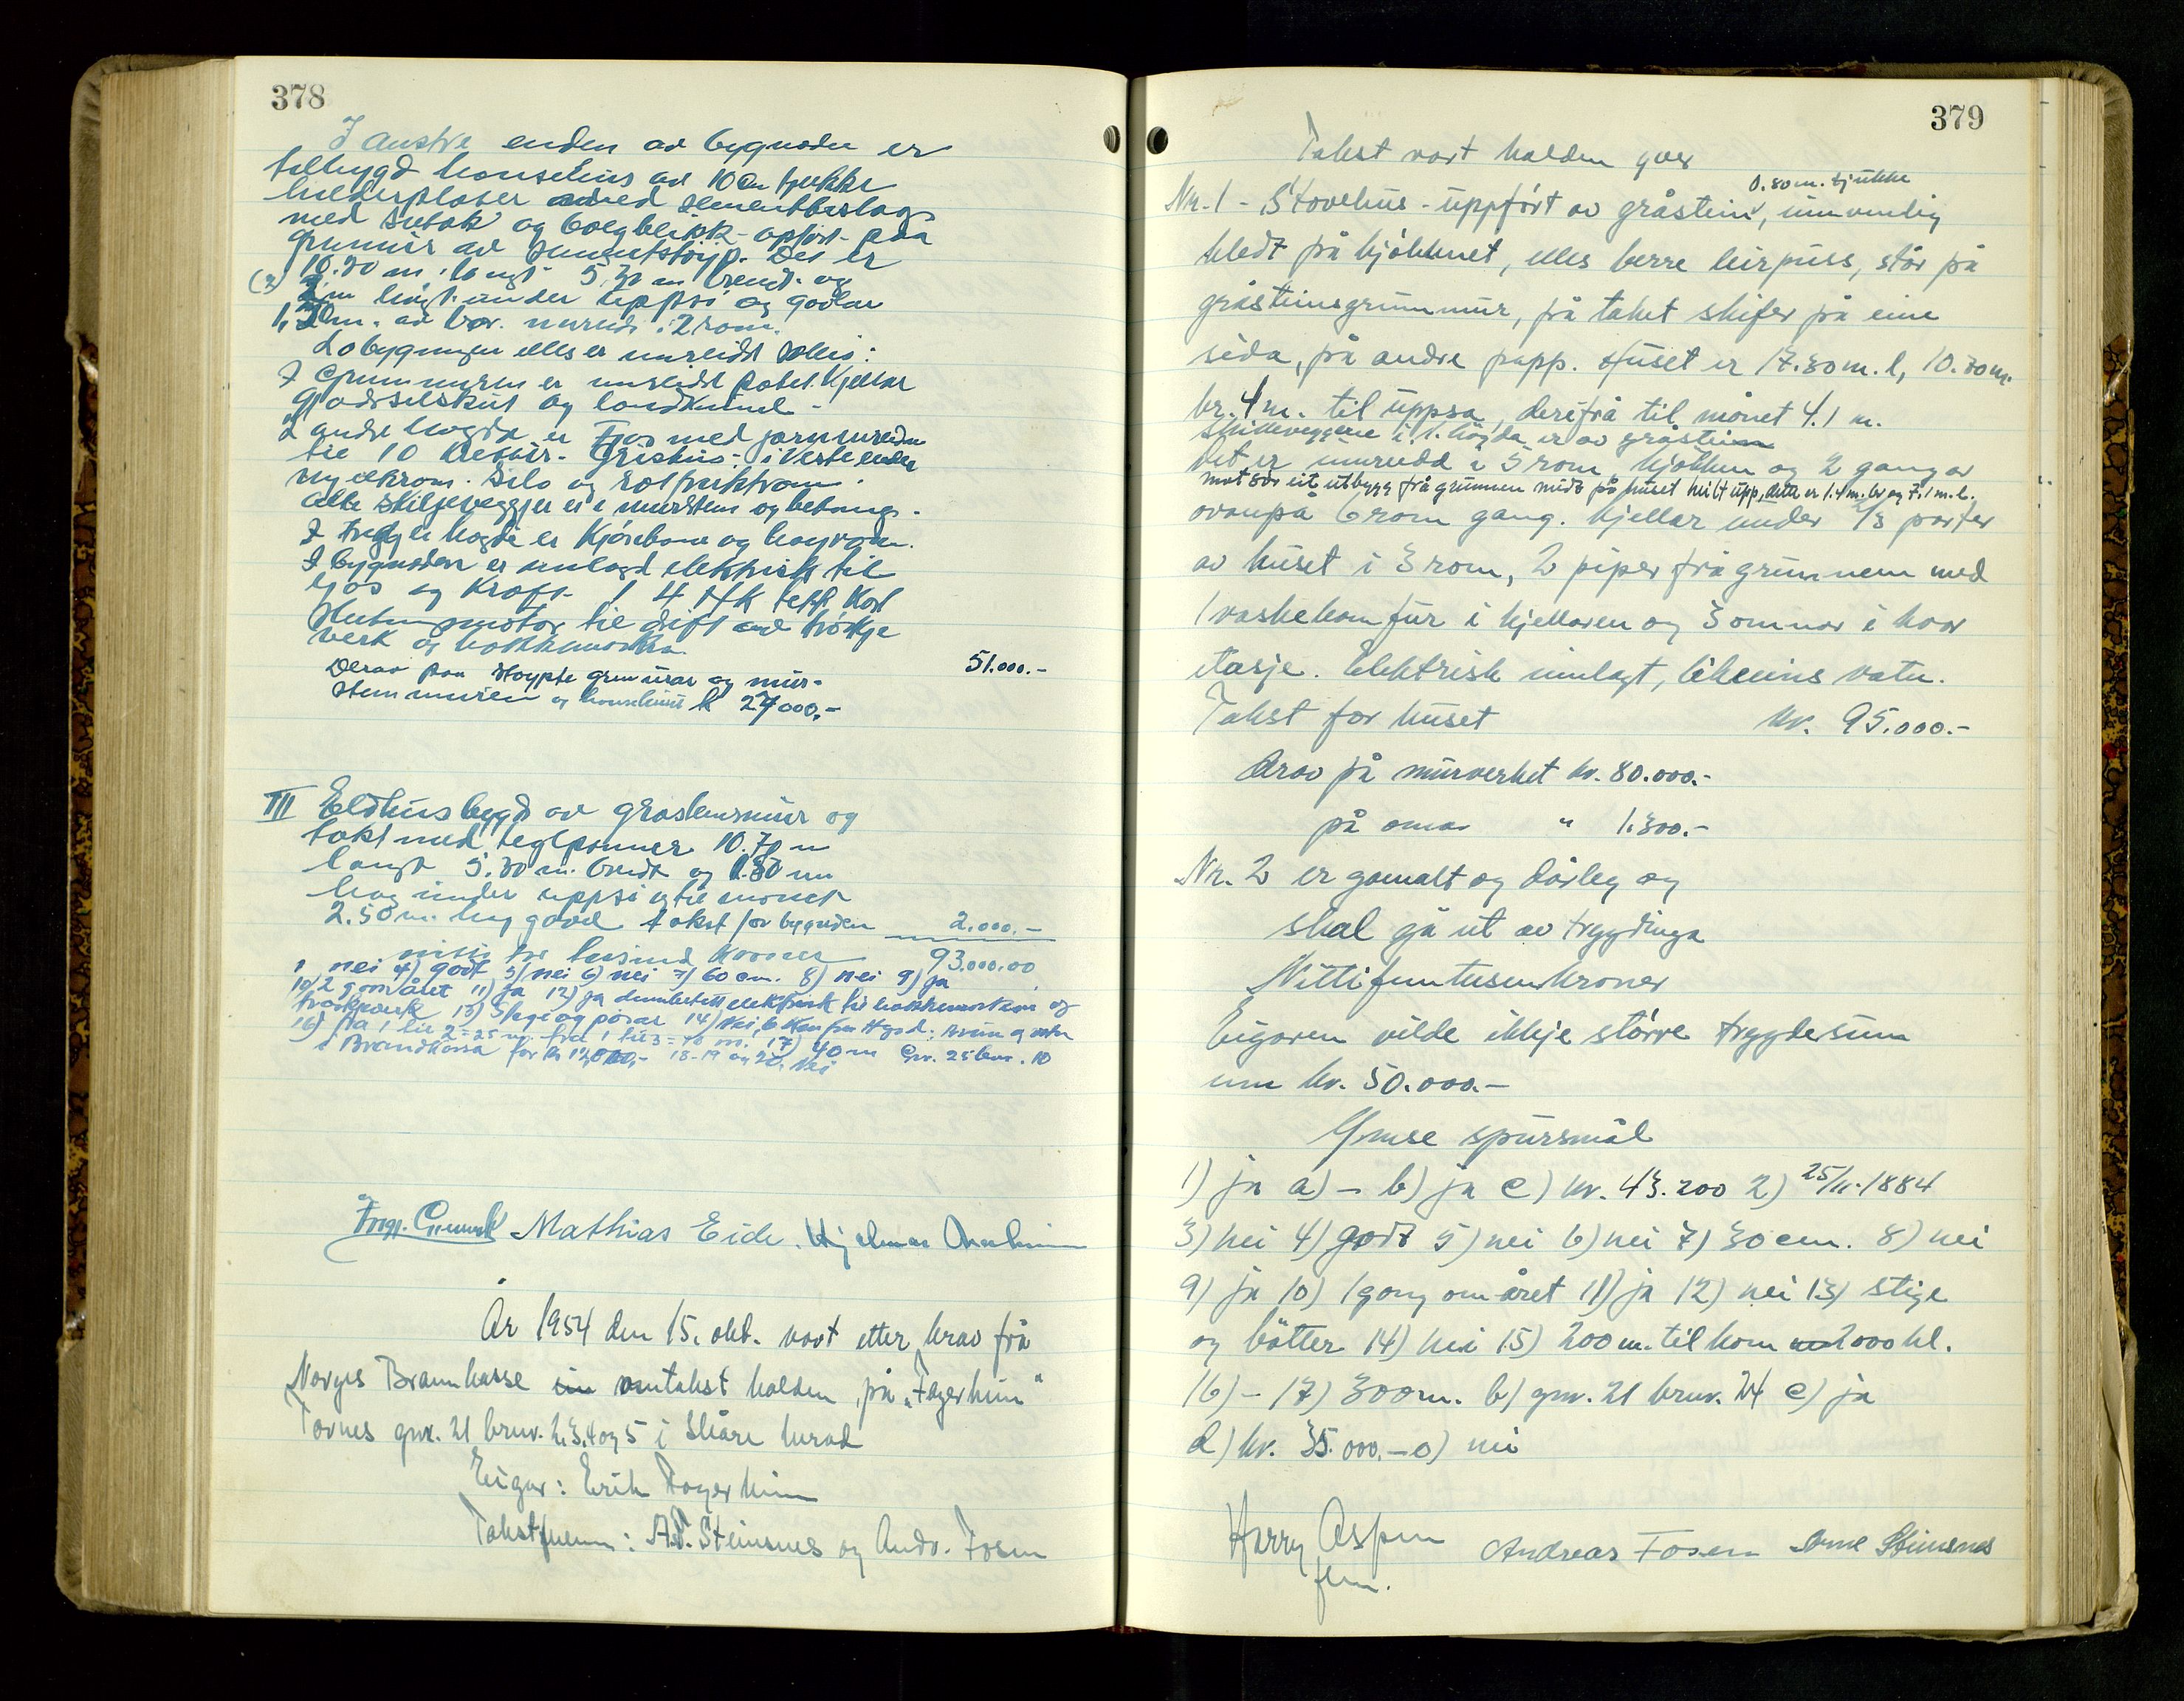 378
I austre enden av bygnaden er
tilbygd honsehus av 10 cm tjukke
hulderplater med sementbeslag
med sutak og bolgblikk - opført paa
grunmur av sementstøyp. Dei er
10.20 m. langt 5,30 m breidt og
(2) 2 m høgt under uppsi og gavlar
1,20 m. av bor. innreidt i 2 rom.
Lobygningen elles er innreidt soleis:
I Grunmuren er innreidt potet Kjellar
Gjødselskur og landkumme -
I andre høgda er Fjos med jarninreidn
til 10 Kretur - Grishus - i Vestre enden
mjelkrom. Silo og rotfruktrom.
Alle skiljeveggjer er i murstein og betong.
I tredje høgde er Kjørebane og høyrom.
I bygnaden er innlagd elektrisk til
ljos og Kraft 1 4 HK
motor til drift av trøskje
verk og hakkemaskin
51.000.-
Derav paa støypte grunnmurar og mur-
steinmuren og hønsehuset k 27000,-
III Eldhus bygd av graasteinsmur og
tekt med teglpanner 10.70 m
langt 5.30 m. breidt og 1.80 m
høg under uppsi og til mønet
2.50 m. høg gavl takst for bygnaden 2.000.-
nitti tre tusund kroner 93.000,00
1 nei 4) godt 5) nei 6) nei 7) 60 cm. 8) nei 9) ja
10) 2 gonr året 11) ja 12) ja elektrisk til hakkemaskin og
trøskverk 13) Stige og pøsar 14) Nei
16) fra 1 til 2 = 25 m. fra 1 til 3 = 40 m. 17) 40 m Gnr. 25 bnr. 10
i Brandkassa for kr 18-19 og 20. Nei
Mathias Eide. Hjalmar
År 1954 den 15. okt. vart etter krav frå
Norges Brannkasse omtakst halden på "Fagerheim"
Tornes gnr. 21 bruv. 2, 3, 4 og 5 i Skåre herad
Eigar: Erik Fagerheim
Takstmenn: A.T. Steinsnes og Andr. Fosen
379
Takst vart halden yver
0.80 m. tjukke
Nr. 1 - Stovehus - uppført av gråstein, innvendig
kledt på kjøkkenet, elles berre leirpuss, står på
gråsteinsgrunnmur, på taket skifer på eine
sida, på andre papp. Huset er 17.30 m. l, 10.30 m.
br. 4 m. til uppsa, derifrå til mønet 4.1 m.
Skilleveggene i 1. høgda er av gråstein
Det er innreidd i 5 rom, kjøkken og 2 gangar
mot sør eit utbygg frå grunnen midt på huset heilt upp, dette er 1.4 m. br og 7.1 m. l.
ovanpå 6 rom gang. Kjellar under 2/3 parter
av huset i 3 rom, 2 piper frå grunnen med
1 vaskekomfur i kjellaren og 3 omnar i kvar
etasje. Elektrisk innlagt, likeeins vatn.
Takst for huset kr. 95.000.-
Derav på murverket kr. 80.000.-
på omnar " 1.300.-
Nr. 2 er gamalt og dårleg og
skal gå ut av trygdinga
Nittifemtusenkroner
Eigaren vilde ikkje større trygdesum
enn kr. 50.000.-
Ymse spursmål
1) ja a) - b) ja c) kr. 43.200 2) 25/11-1884
3) nei 4) godt 5) nei 6) nei 7) 30 cm. 8) nei
9) ja 10) 1 gong om året 11) ja 12) nei 13) stige
og bøtter 14) nei 15) 200 m. til kom 2000 hl.
16) - 17) 300 m. b) gnr. 21 bruv. 24 c) ja
d) kr. 35.000.- e) nei
Harry Aspen
fm.
Andreas Fosen Arne Steinsnes